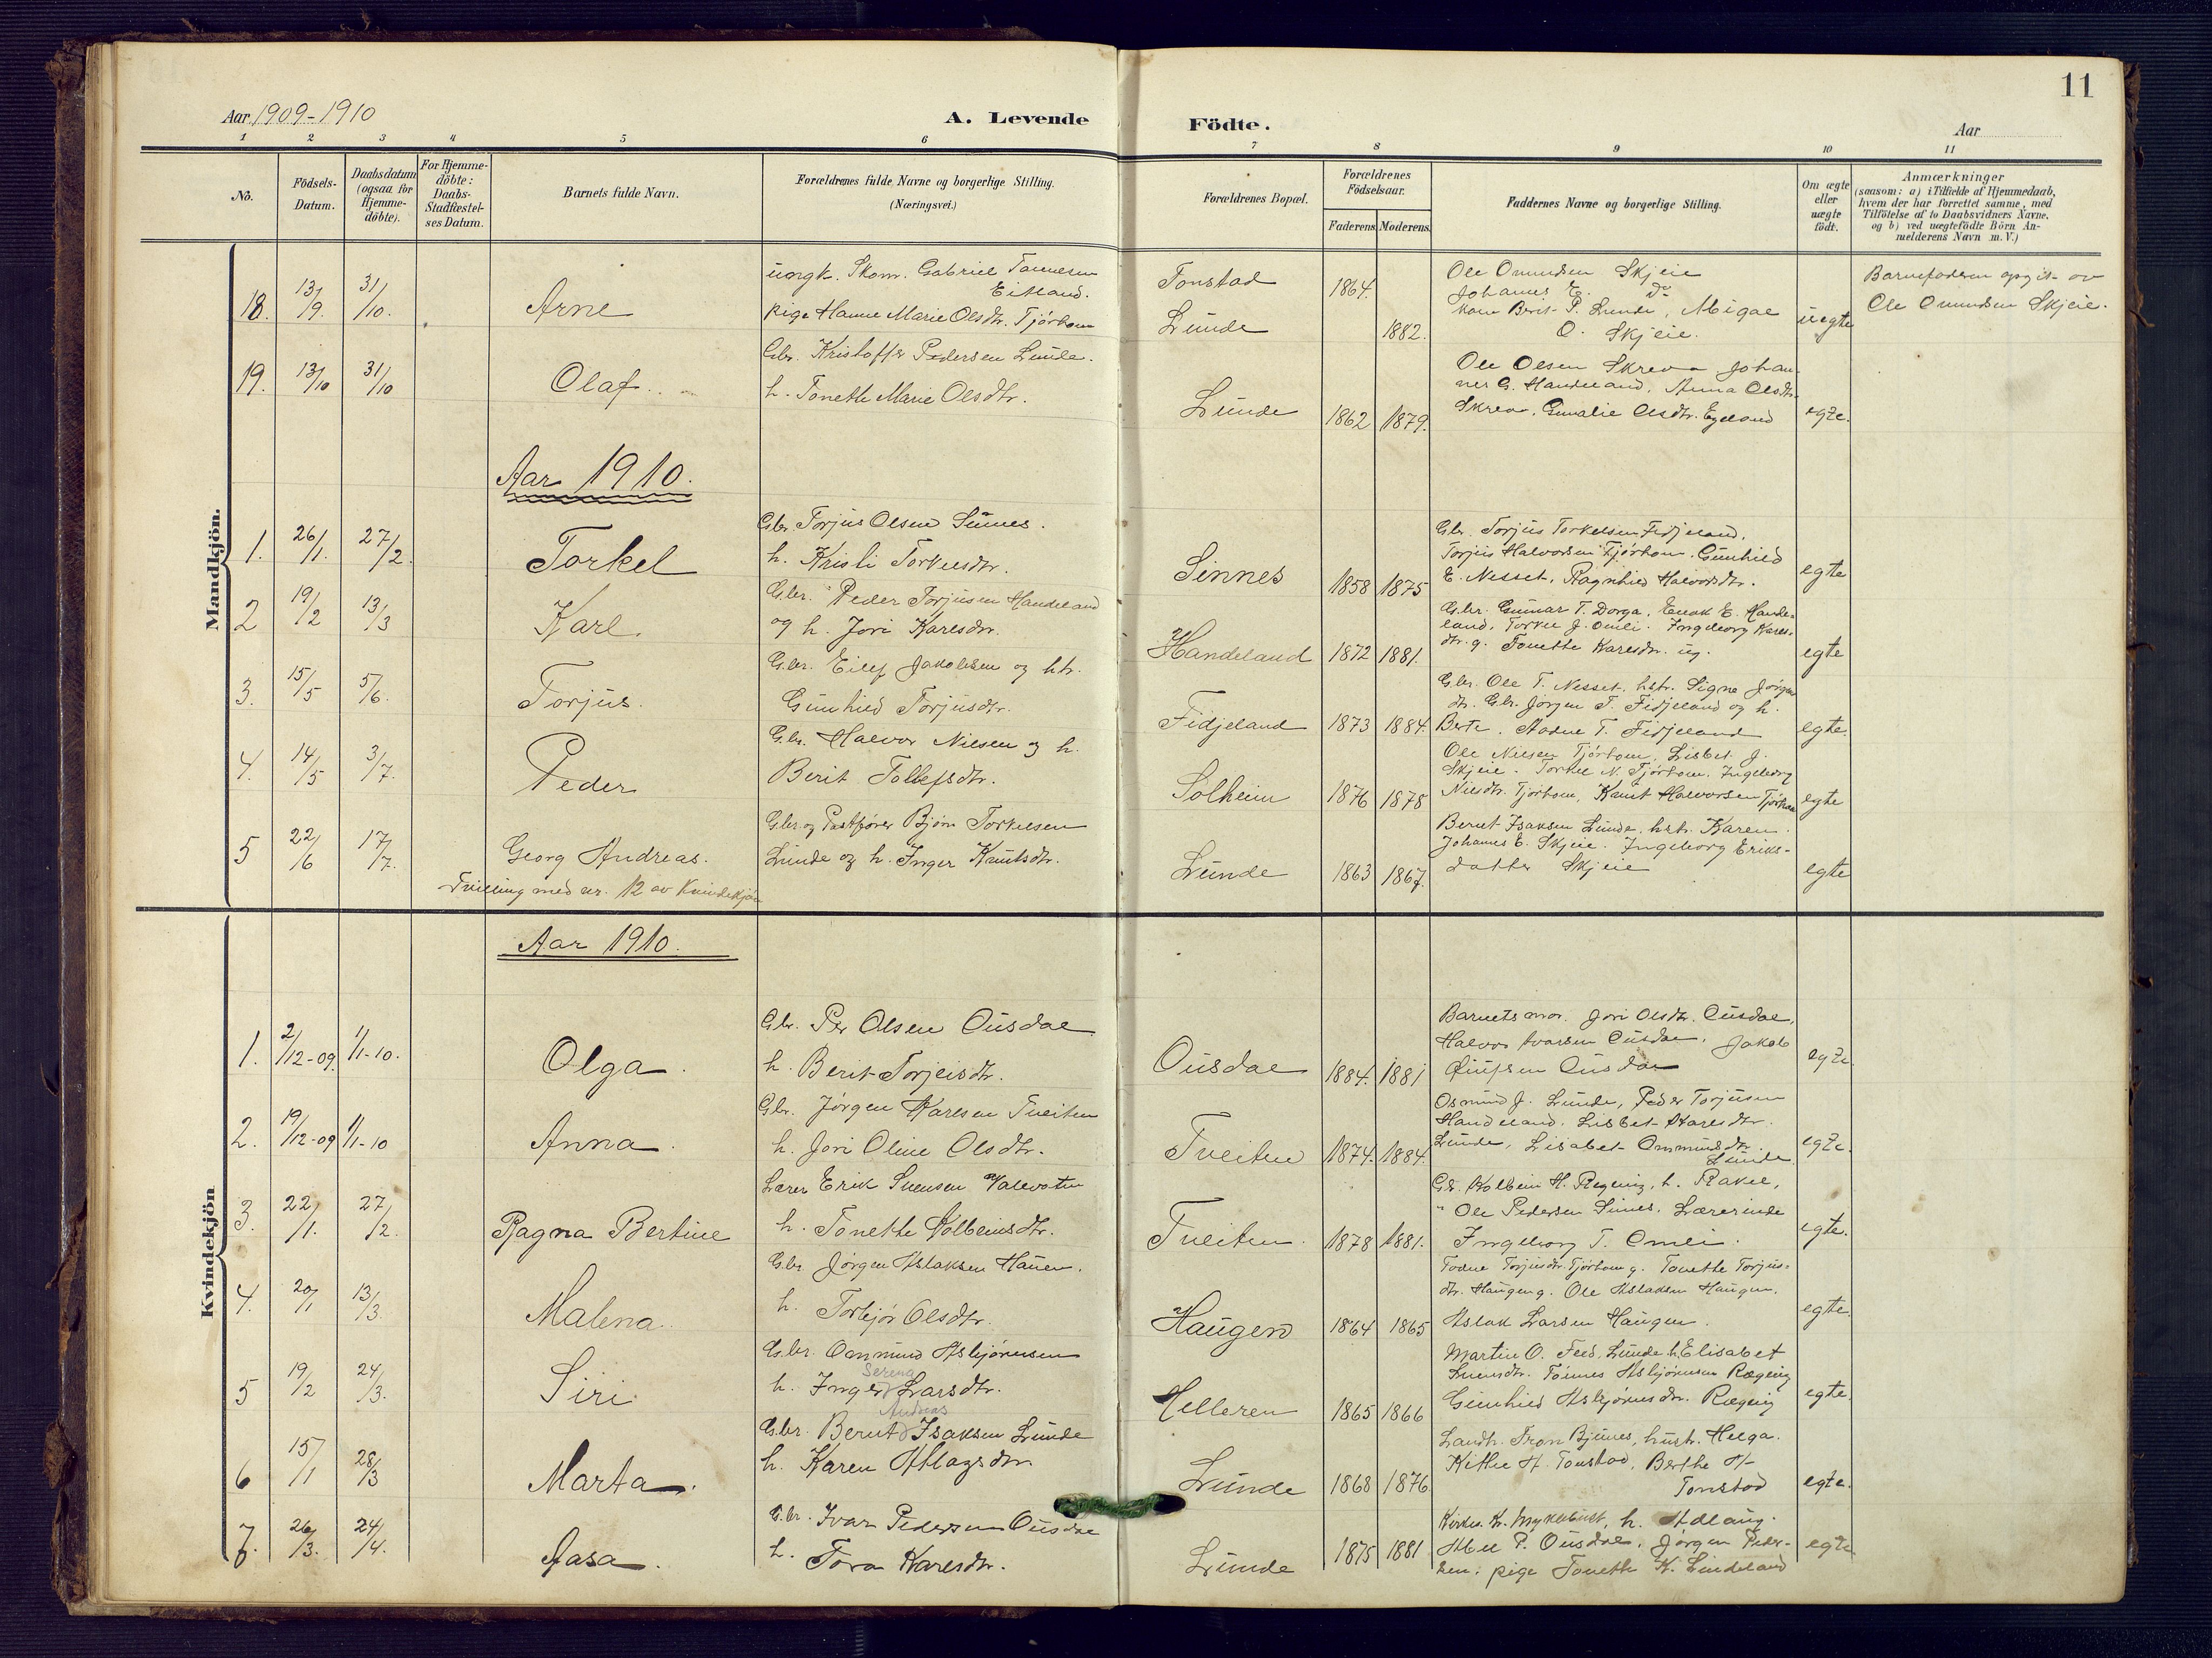 11
Aar 1909-1910
A. Levende Födte.
Aar
1 2 3 4 5 6 7 8 9 10 11
No.
Födsels-Datum.
Daabsdatum (ogsaa for Hjemme-döbte).
For Hjemme-döbte: Daabs-Stadfæstel-ses Datum.
Barnets fulde Navn.
Forældrenes fulde Navne og borgerlige Stilling.
(Næringsvei.)
Forældrenes Bopæl.
Forældrenes Födselsaar.
Faderens. Moderens.
Faddernes Navne og borgerlige Stilling.
Om ægte eller uægte födt.
Anmærkninger
(saasom: a) i Tilfælde af Hjemmedaab, hvem der har forrettet samme, med Tilföielse af to Daabsvidners Navne, og b) ved uægtefödte Börn An-melderens Navn m. V.)
Mandkjön.
18. 13/9. 31/10. Arne
ungk. Skom. Gabriel Tønnesen
Eitland.
pige Hanne Marie Olsdtr. Tjörhom
Tonstad 1864.
Lunde 1882.
Ole Omundsen Skjeie
Johannes E. do
kone Berit P. Lunde, Migal
O. Skjeie.
uegte
Barnefaderen opgit av
Ole Omundsen Skjeie.
19. 13/10 31/10 Olaf.
Gbr. Kristoffer Pedersen Lunde.
h. Tonethe Marie Olsdtr.
Lunde 1862 1879.
Ole Olsen Skreva Johan-
nes G. Handeland, Anna Olsdtr.
Skreva, Olsdtr. Egeland
egte.
Aar 1910.
1. 26/1. 27/2. Torkel
Gbr. Torjus Olsen Sinnes.
h. Kristi Torkelsdtr.
Sinnes 1858 1875
Gbr. Torjus Torkelsen Fidjeland,
Torjus Halvorsen Tjörhom, Gunhild
E. Nesset, Ragnhild Halvorsdtr.
egte
2 19/2 13/3 Karl.
Gbr. Peder Torjusen Handeland
og h. Jori Karlsdtr.
Handeland 1872 1881.
Gbr. Gunnar T. Dorga, Enok E. Hande-
land, Torkel J. Omli. Ingeborg Karls-
dtr. g. Tonette Karlsdtr. ug.
egte
3. 15/5 5/6. Torjus.
Gbr. Eilef Jakobsen og htr.
Gunhild Torjusdtr.
Fidjeland 1873 1884.
Gbr. Ole T. Nesset, hstr. Signe Jörgens
dtr. Gbr. Jörgen T. Fidjeland og h.
Berte. Aadne T. Fidjeland
egte.
4. 14/5 3/7. Peder
Gbr. Halvor Nilsen og h.
Berit Tollefsdtr.
Solheim 1876 1878
Ole Nilsen Tjörhom, Lisbet J.
Skjeie. Torkel N. Tjörhom, Ingeborg
Nilsdtr. Tjörhom, Knut Halvorsen Tjörhom
egte
5 22/6 17/7. Georg Andreas.
Gbr. og Postfører Björn Torkelsen
Lunde og h. Inger Knutsdtr.
Tvilling med nr. 12 av Kvindekjön
Lunde 1863 1867.
Bernt Isaksen Lunde, hstr. Karen.
Johannes E. Skjeie. Ingeborg Eriks-
datter Skjeie
egte
Kvindekjön
Aar 1910.
1. 2/12-09. 1/1-10. Olga.
Gbr. Per Olsen Ousdal
h. Berit Torjeisdtr.
Ousdal 1884. 1881
Barnets mor. Jori Olsdtr. Ousdal,
Halvor Ivarsen Ousdal, Jakob
Ousdal
egte
2. 19/12-09 1/1-10 Anna.
Gbr. Jörgen Karlsen Tveiten
h. Jori Oline Olsdtr.
Tveiten 1874. 1884.
Osmund J. Lunde, Peder Torjusen
Handeland. Lisbet Karlsdtr.
Lunde, Lisabet Ommundsdtr.
Lunde
egte.
3. 22/1. 27/2. Ragna Bertine
Lærer Erik Svensen Valevatn
h. Tonethe Kolbeinsdtr.
Tveiten. 1878 1881.
Gbr. Kolbein H. Regeing, h. Rakel,
" Ole Pedersen Sinnes. Lærerinde
Ingeborg T. Omli.
egte.
4. 20/1 13/3. Malena.
Gbr Jörgen Aslaksen Haugen.
h. Torbjör Olsdtr.
Haugen 1864 1865
Todne Torjusdtr. Tjörhom g. Tonette Torjus-
dtr. Haugen g. Ole Aslaksen Haugen.
Aslak Larsen Haugen.
egte.
5 19/2 24/3. Siri
Gbr. Ommund Asbjörnsen
Serena
h. Inger Larsdtr.
Helleren 1865 1866
Martin O. Feed, Lunde h. Elisabet
Svensdtr. Tönnes Asbjörnsen Rægeing
Gunhild Asbjörnsdtr. Rægeing
egte.
6 15/1 28/3 Marta.
Andreas
Gbr. Bernt Isaksen Lunde
h. Karen Atlagsdtr.
Lunde 1868 1876
Landh. Tron Bjunes, hustr. Helga.
Kitlil A. Tonstad, Berthe A.
Tonstad
egte.
7. 26/3. 24/4. Aasa.
Gbr. Ivar Pedersen Ousdal
h. Tora Karlsdtr.
Lunde 1875 1881
Kirkes. K. Myklebust, h. Adlaug.
Abel P. Ousdal, Jörgen Peder-
sen, pige Tonethe K. Lindeland
egte